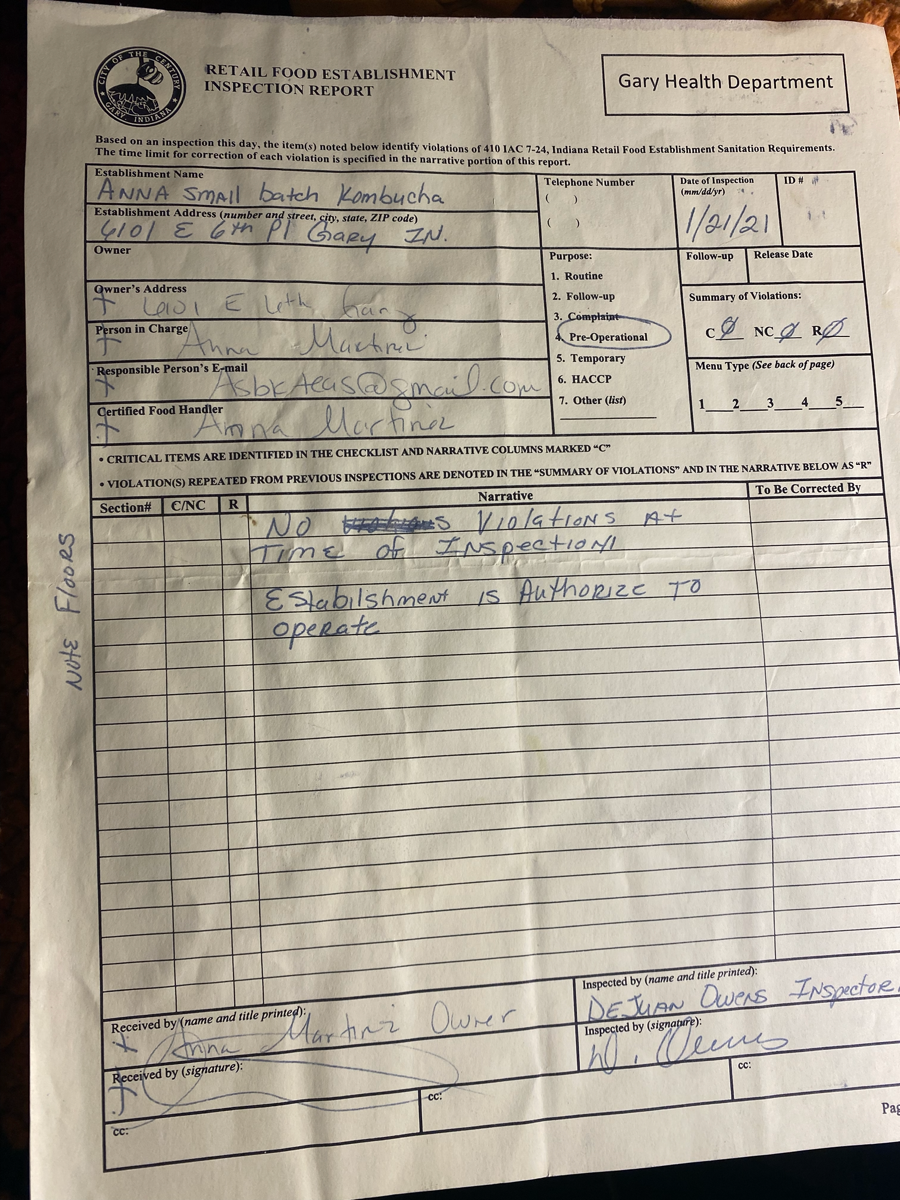 CITY OF THE CENTURY
GARY, INDIANA
RETAIL FOOD ESTABLISHMENT
INSPECTION REPORT
Gary Health Department
Based on an inspection this day, the item(s) noted below identify violations of 410 IAC 7-24, Indiana Retail Food Establishment Sanitation Requirements.
The time limit for correction of each violation is specified in the narrative portion of this report.
Establishment Name
ANNA Small batch Kombucha
Telephone Number
( )
( )
Date of Inspection
(mm/dd/yr)
1/21/21
ID #
Establishment Address (number and street, city, state, ZIP code)
6101 E 6th Pl Gary IN.
Owner
Owner's Address
E Gary
Person in Charge
Anna Martinez
Responsible Person's E-mail
@gmail.com
Certified Food Handler
Anna Martinez
Purpose:
1. Routine
2. Follow-up
3. Complaint
4. Pre-Operational
5. Temporary
6. HACCP
7. Other (list)
Follow-up
Release Date
Summary of Violations:
C Ø NC Ø R Ø
Menu Type (See back of page)
1 2 3 4 5
• CRITICAL ITEMS ARE IDENTIFIED IN THE CHECKLIST AND NARRATIVE COLUMNS MARKED "C"
• VIOLATION(S) REPEATED FROM PREVIOUS INSPECTIONS ARE DENOTED IN THE "SUMMARY OF VIOLATIONS" AND IN THE NARRATIVE BELOW AS "R"
Section# C/NC R Narrative To Be Corrected By
NO VIOlATIONS At
TIME of INSpectION
EStabilshment is AuthORIZE TO
OPERAte
NOTE FlOORS
Received by (name and title printed):
Anna Martinez Owner
Inspected by (name and title printed):
DEJUAN OWENS INSPECTOR
Received by (signature):
Inspected by (signature):
D. Owens
cc:
cc:
cc: